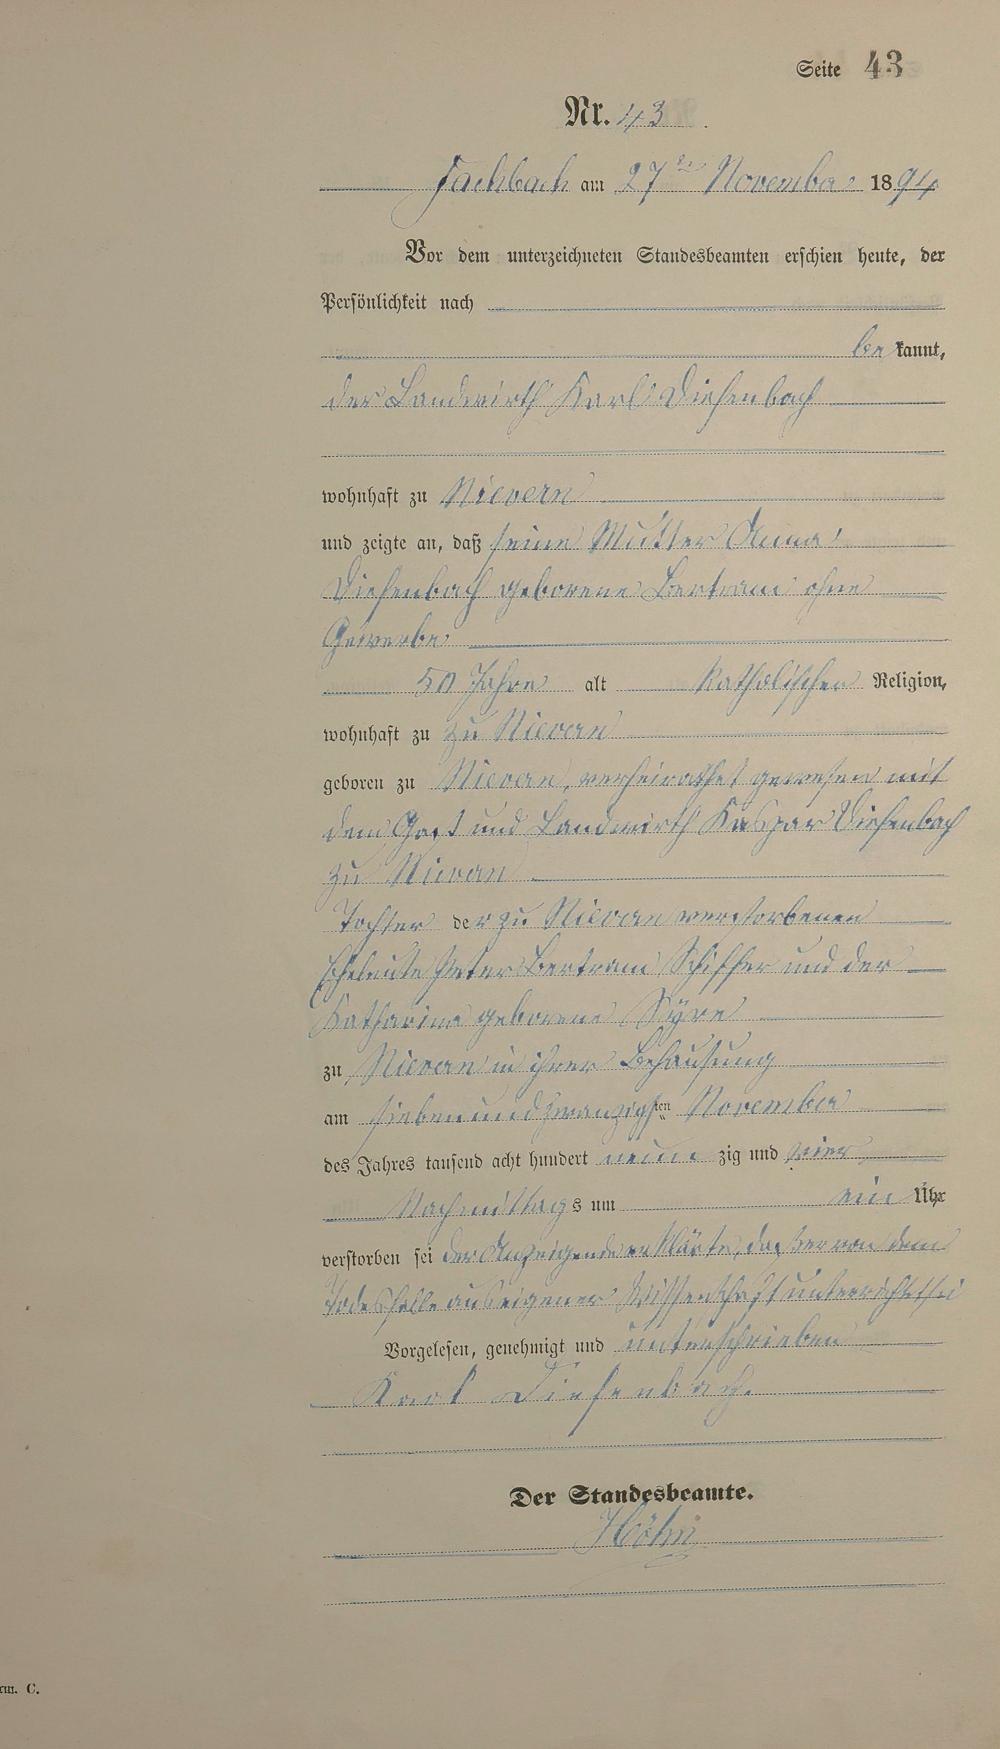 Seite 43
Nr. 43
Fachbach am 27ten November 1894
Vor dem unterzeichneten Standesbeamten erschien heute, der
Persönlichkeit nach
bekannt,
der Landwirth Karl Diefenbach
wohnhaft zu Nievern
und zeigte an, daß seine Mutter Anna
Diefenbach geborene Bertram ohne
Gewerbe
50 Jahre alt katholischer Religion,
wohnhaft zu zu Nievern
geboren zu Nievern, verheirathet gewesen mit
dem Gast und Landwirth Kaspar Diefenbach
zu Nievern
Tochter der zu Nievern verstorbenen
Eheleute Peter Bertram Schiffer und der
Katharina geborene
zu Nievern in ihrer Behausung
am siebenundzwanzigsten November
des Jahres tausend acht hundert neunzig und vier
Nachmittags um ein Uhr
verstorben sei der Anzeigende erklärte, daß er von dem
Todesfalle aus eigener Wissenschaft unterrichtet sei
Vorgelesen, genehmigt und unterschrieben
Karl Diefenbach.
Der Standesbeamte.
rm. C.